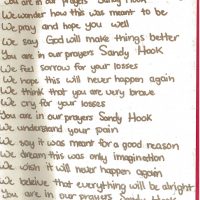 You are in our prayers Sandy Hook
We wonder how this was meant to be
We pray and hope you well
We say God will make things better
You are in our prayers Sandy Hook
We feel sorrow for your losses
We hope this will never happen again
We think that you are very brave
We cry for your losses
You are in our prayers Sandy Hook
We understand your pain
We say it was meant for a good reason
We dream this was only imagination
We wish it will never happen again
We beleive that everything will be alright
You are in our prayers Sandy Hook